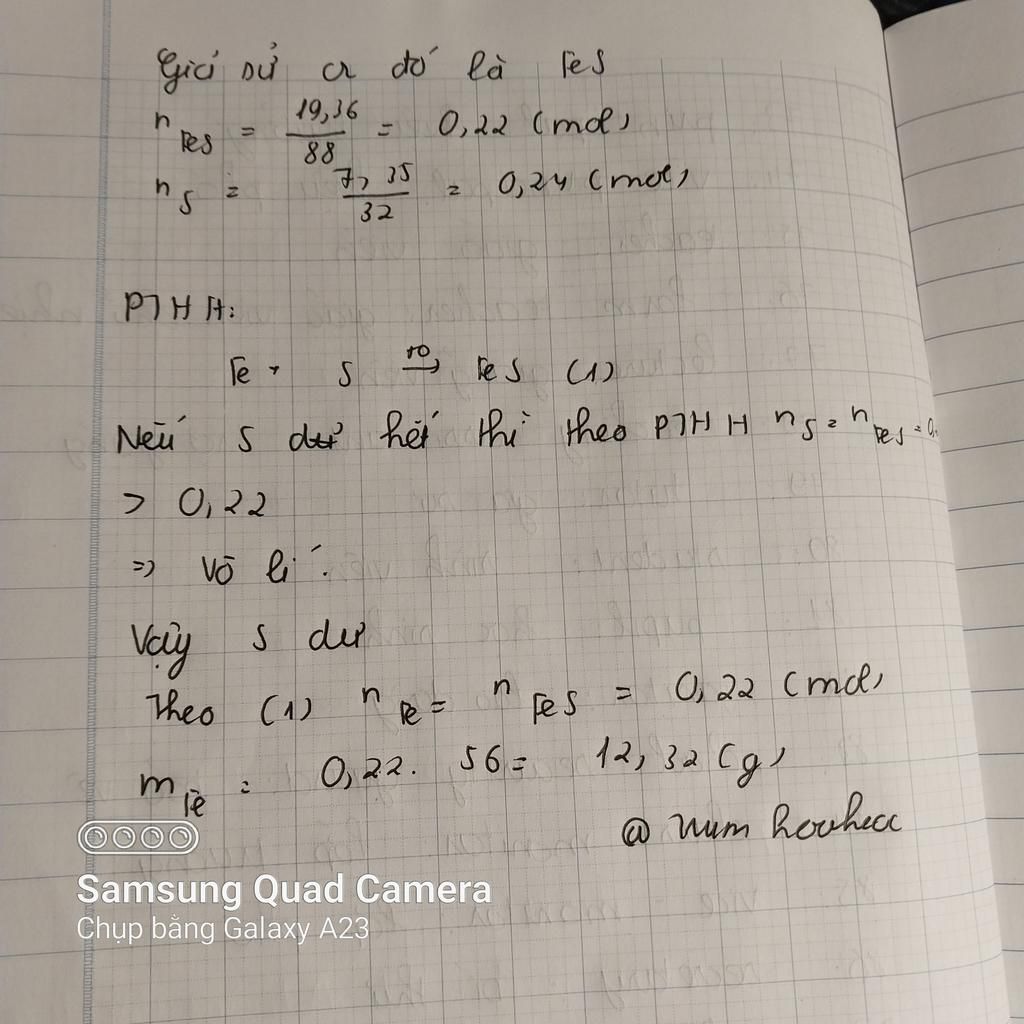 Giả sử cr đó là FeS
n FeS = 19,36 / 88 = 0,22 (mol)
n S = 7,35 / 32 = 0,24 (mol)
PTHH:
Fe + S t0→ FeS (1)
Nếu S dư hết thì theo PTHH n S = n FeS = 0,
> 0,22
=> Vô lí.
Vậy S dư
Theo (1) n Fe = n FeS = 0,22 (mol)
m Fe = 0,22. 56 = 12,32 (g)
@
Samsung Quad Camera
Chụp bằng Galaxy A23